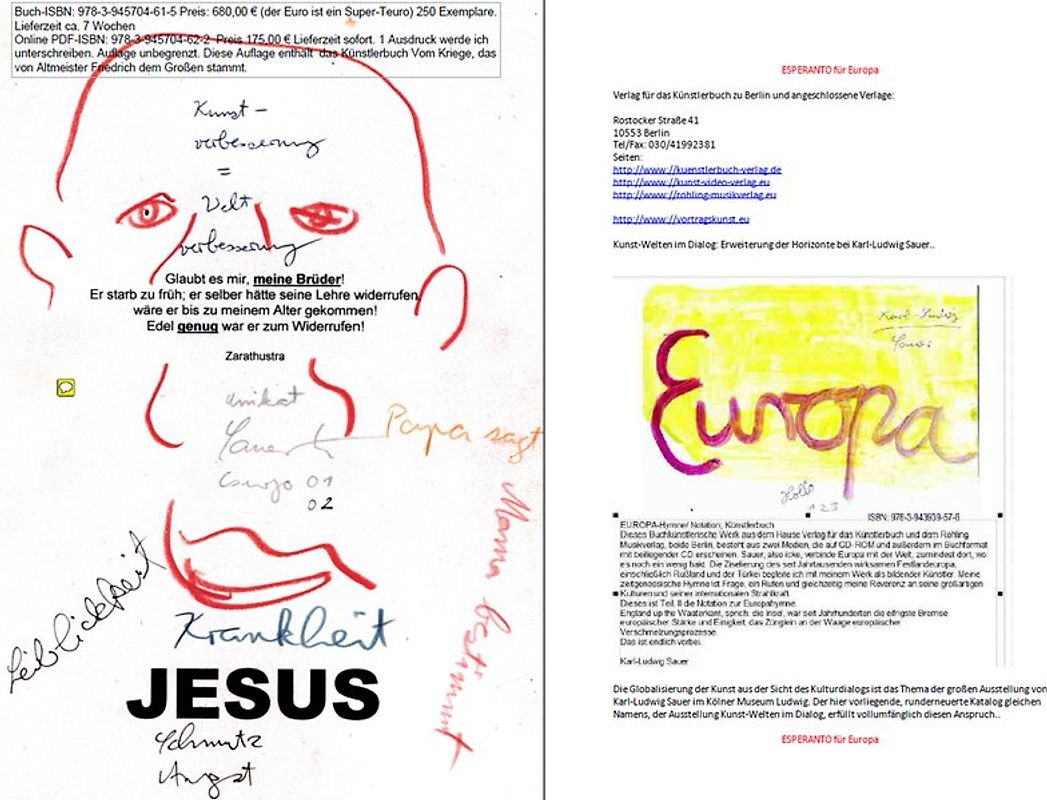 Buch-ISBN: 978-3-945704-61-5 Preis: 680,00 € (der Euro ist ein Super-Teuro) 250 Exemplare.
Lieferzeit ca. 7 Wochen
Online PDF-ISBN: 978-3-945704-62-2 Preis 175,00 € Lieferzeit sofort. 1 Ausdruck werde ich
unterschreiben. Auflage unbegrenzt. Diese Auflage enthält das Künstlerbuch Vom Kriege, das
von Altmeister Friedrich dem Großen stammt.
Kunst-
verbesserung
=
Welt
verbesserung
Glaubt es mir, meine Brüder!
Er starb zu früh; er selber hätte seine Lehre widerrufen,
wäre er bis zu meinem Alter gekommen!
Edel genug war er zum Widerrufen!
Zarathustra
unikat
Sauer
01
02
Papa sagt
Mama bestimmt
Leiblichkeit
Krankheit
JESUS
Schmutz
Angst
ESPERANTO für Europa
Verlag für das Künstlerbuch zu Berlin und angeschlossene Verlage:
Rostocker Straße 41
10553 Berlin
Tel/Fax: 030/41992381
Seiten:
http://www.//kuenstlerbuch-verlag.de
http://www.//kunst-video-verlag.eu
http://www.//rohling-musikverlag.eu
http://www.//vortragskunst.eu
Kunst-Welten im Dialog: Erweiterung der Horizonte bei Karl-Ludwig Sauer..
Karl-Ludwig
Sauer
Europa
Hollo
123
ISBN: 978-3-943939-57-6
EUROPA-Hymne/ Notation, Künstlerbuch
Dieses Buchkünstlerische Werk aus dem Hause Verlag für das Künstlerbuch und dem Rohling
Musikverlag, beide Berlin, besteht aus zwei Medien, die auf CD-ROM und außerdem im Buchformat
mit beiliegender CD erscheinen. Sauer, also icke, verbinde Europa mit der Welt, zumindest dort, wo
es noch ein wenig hakt. Die Ziselierung des seit Jahrtausenden wirksamen Festlandeuropa,
einschließlich Rußland und der Türkei begleite ich mit meinem Werk als bildender Künstler. Meine
zeitgenössische Hymne ist Frage, ein Rufen und gleichzeitig meine Reverenz an seine großartigen
Kulturen und seiner internationalen Strahlkraft.
Dieses ist Teil, II die Notation zur Europahymne.
England up the Waaterkant, sprich: die Insel, war seit Jahrhunderten die eifrigste Bremse
europäischer Stärke und Einigkeit, das Zünglein an der Waage europäischer
Verschmelzungsprozesse.
Das ist endlich vorbei.
Karl-Ludwig Sauer
Die Globalisierung der Kunst aus der Sicht des Kulturdialogs ist das Thema der großen Ausstellung von
Karl-Ludwig Sauer im Kölner Museum Ludwig. Der hier vorliegende, runderneuerte Katalog gleichen
Namens, der Ausstellung Kunst-Welten im Dialog, erfüllt vollumfänglich diesen Anspruch..
ESPERANTO für Europa